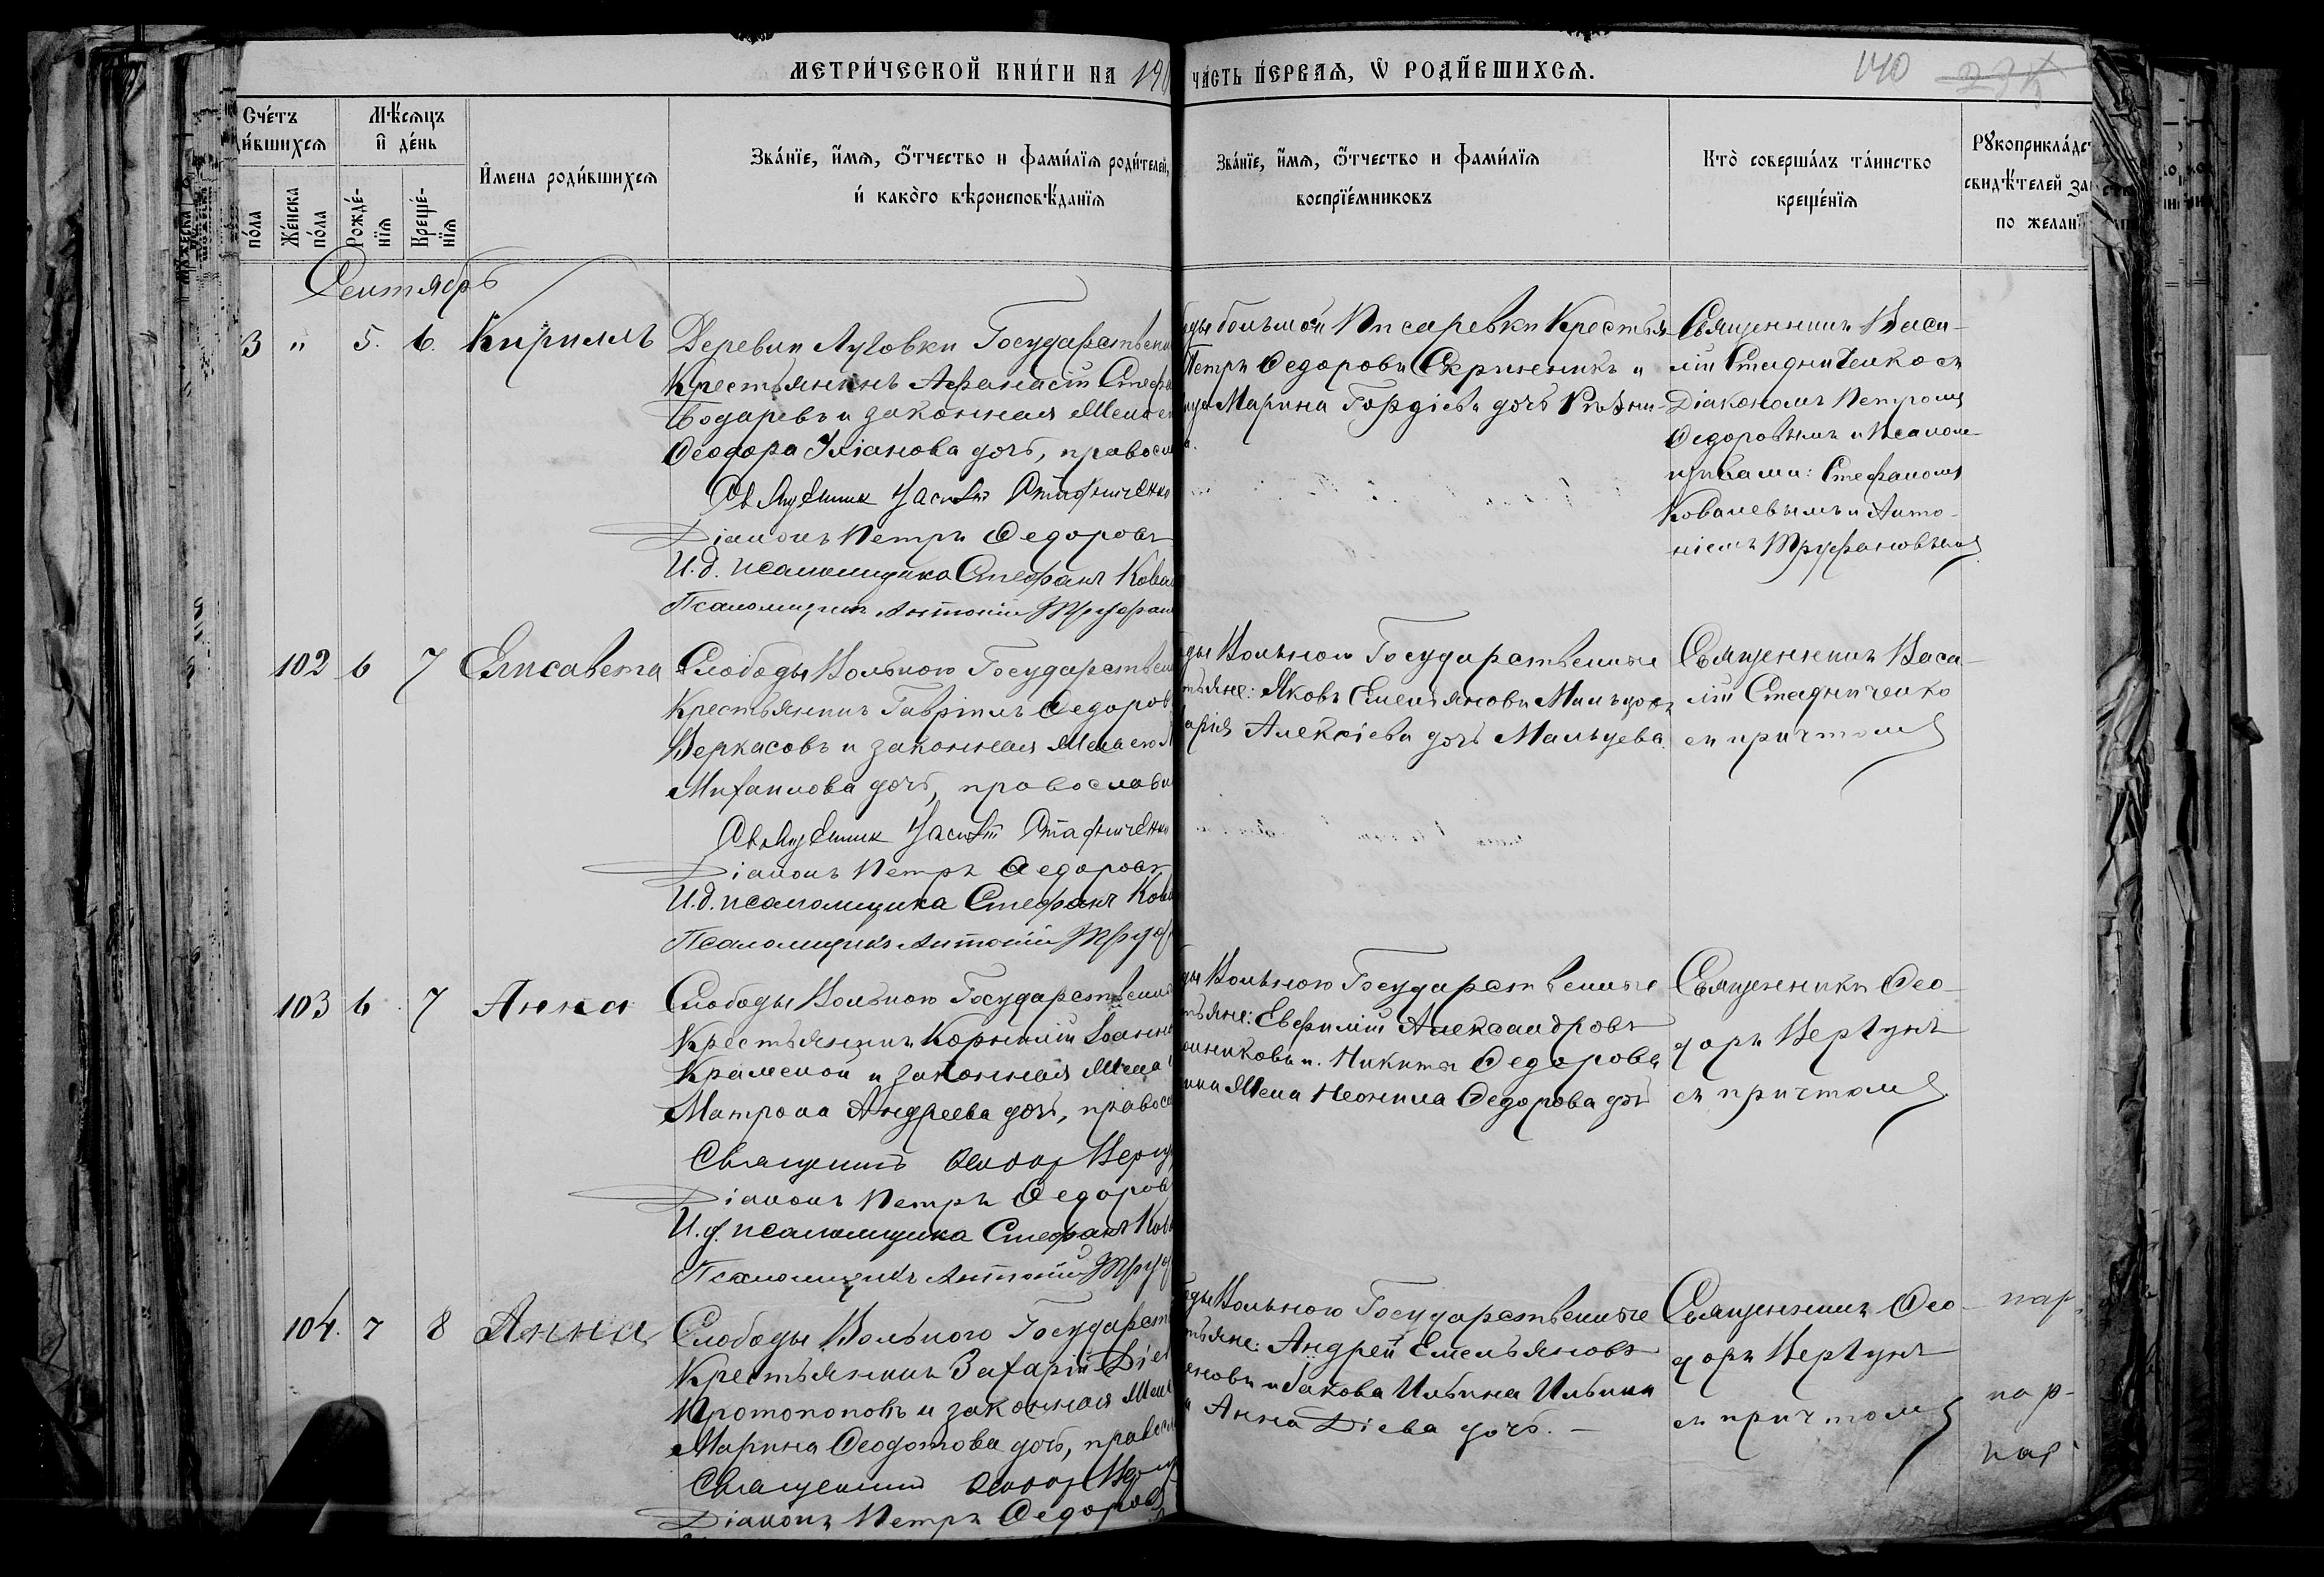 МЕТРИ́ЧЕСКОЙ КНИ́ГИ НА 190
ЧА́СТЬ ПЕ́РВАЯ, Ѡ РОДИ́ВШИХСЯ.
140
Сче́тъ
ди́вшихся
Мѣ́сяцъ
и҆ де́нь
И҆мена роди́вшихся
Зва́нїе, и҆́мя, ѻ҆́тчество и фами́лїя роди́телей,
и҆ како́гѡ вѣроисповѣ́данїя
Зва́нїе, и҆́мя, ѻ҆́тчество и фами́лїя
воспрїе́мниковъ
Кто̀ соверша́лъ та́инство
креще́нїя
Рꙋкоприкла́дс
свидѣ́телей за
по желан
по́ла
Же́нска
по́ла
Рожде́-
нїя
Креще́-
нїя
Сентябрь
3 " 5. 6. Кириллъ
Деревни Луговки Государствен
Крестьянинъ Аѳанасій Стеф
Бодаревъ и законная Жена е
Ѳеодора Іліанова дочь, правосл
Священник Василій Стадниченко
Діаконъ Петръ Ѳедоровъ
И.д. псаломщика Стефанъ Кова
Псаломщикъ Антоній Труфан
ды большой Писаревки Крестья
Петръ Ѳедоровъ Скринникъ и
Марина Гордіева дочь
Священникъ Васи-
лій Стадниченко съ
Діакономъ Петромъ
Ѳедоровымъ и Псалом-
щиками: Стефаномъ
Ковалевымъ и Анто-
ніемъ Труфановымъ
102 6 7 Елисавета
Слободы Вольного Государствен
Крестьянинъ Гавріилъ Ѳедоров
Веркасовъ и законная Жена его
Михаилова дочь, православн
Священник Василій Стадниченко
Діаконъ Петръ Ѳедоровъ
И.д. псаломщика Стефанъ Кова
Псаломщикъ Антоній Труф
ды Вольного Государственные
тьяне: Яковъ Емельяновъ Мальцовъ
арія Алексіева дочь Мальцева.
Священникъ Васи-
лій Стадниченко
съ причтомъ
103 6 7 Анна
Слободы Вольного Государственн
Крестьянинъ Корнилій Іоанн
Крамской и законная Жена
Матрона Андреева дочь, правосл
Священникъ Ѳеодор Верг
Діаконъ Петръ Ѳедоров
И.д. псаломщика Стефанъ Кова
Псаломщикъ Антоній Труф
ды Вольного Государственные
тьяне: Евфимій Александровъ
никовъ и Никиты Ѳедорова
Жена Неонила Ѳедорова дочь
Священникъ Ѳео-
доръ Вергунъ
съ причтомъ
104. 7 8 Анна
Слободы Вольного Государст
Крестьянинъ Захарій Діев
Протопоповъ и законная Жен
Марина Ѳеодотова дочь, правосл
Священникъ Ѳеодор Верг
Діаконъ Петръ Ѳедоровъ
ды Вольного Государственные
тьяне: Андрей Емельяновъ
новъ и Іакова Ильина Ильина
Анна Діева дочь. —
Священникъ Ѳео-
доръ Вергунъ
съ причтомъ